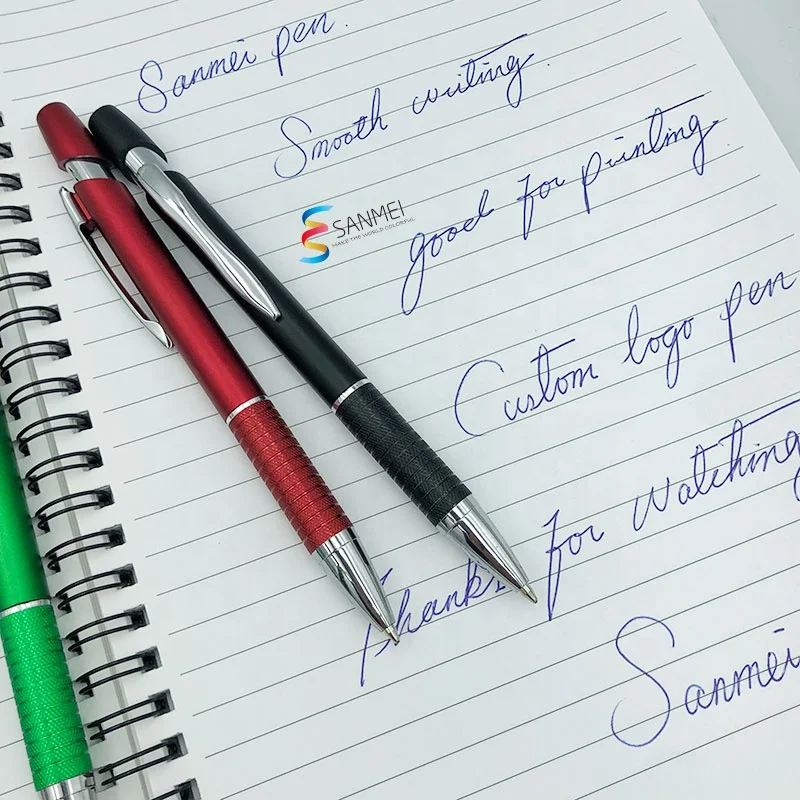 Sanmei pen.
Smooth writing.
SANMEI
MAKE THE WORLD COLORFUL
good for printing.
Custom logo pen
Thanks for watching
Sanmei